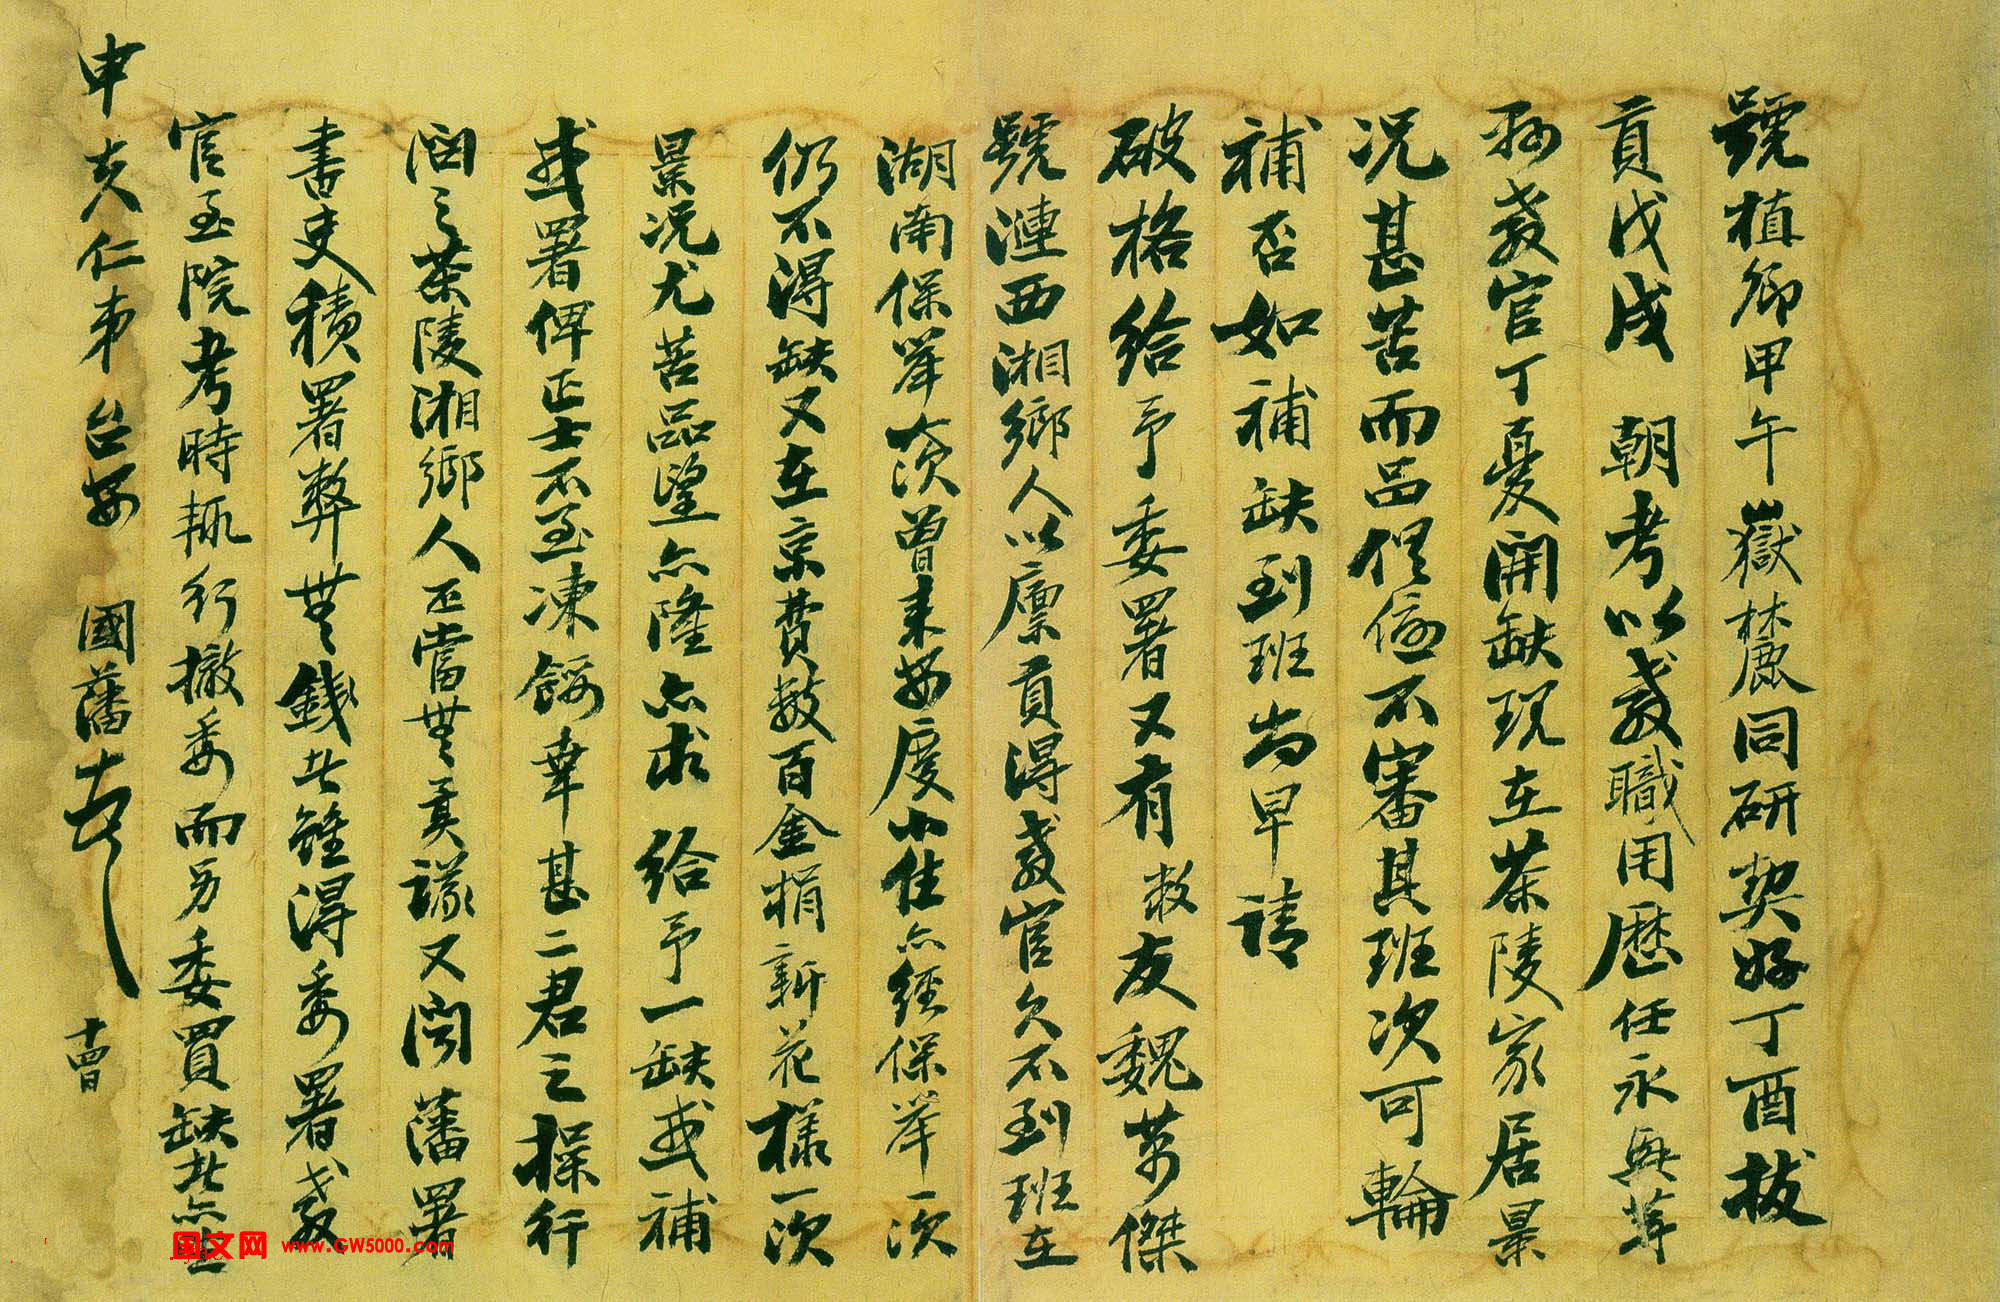 號植卿甲午嶽麓同研契好丁酉拔
貢戊戌 朝考以教職用歷任永興等
教官丁憂開缺現在茶陵家居景
況甚苦而品優不審其班次可輪
補否如補缺到班尚早請
破格給予委署又有敝友魏萬傑
號漣西湘鄉人以廩貢得教官久不到班在
湖南保舉一次曾來安慶小住亦經保舉一次
仍不得缺又在京費數百金捐新花樣一次
景況尤苦品望亦隆亦求 給予一缺或補
或署俾正士不至凍餒幸甚二君之操行
詢之茶陵湘鄉人正當無異議又聞藩署
書吏積署弊無錢者雖得委署教
官至院考時輒行撤委而另委買缺者亦望
申夫仁弟 台安 國藩頓首 十四日
国文网 www.GW5000.com